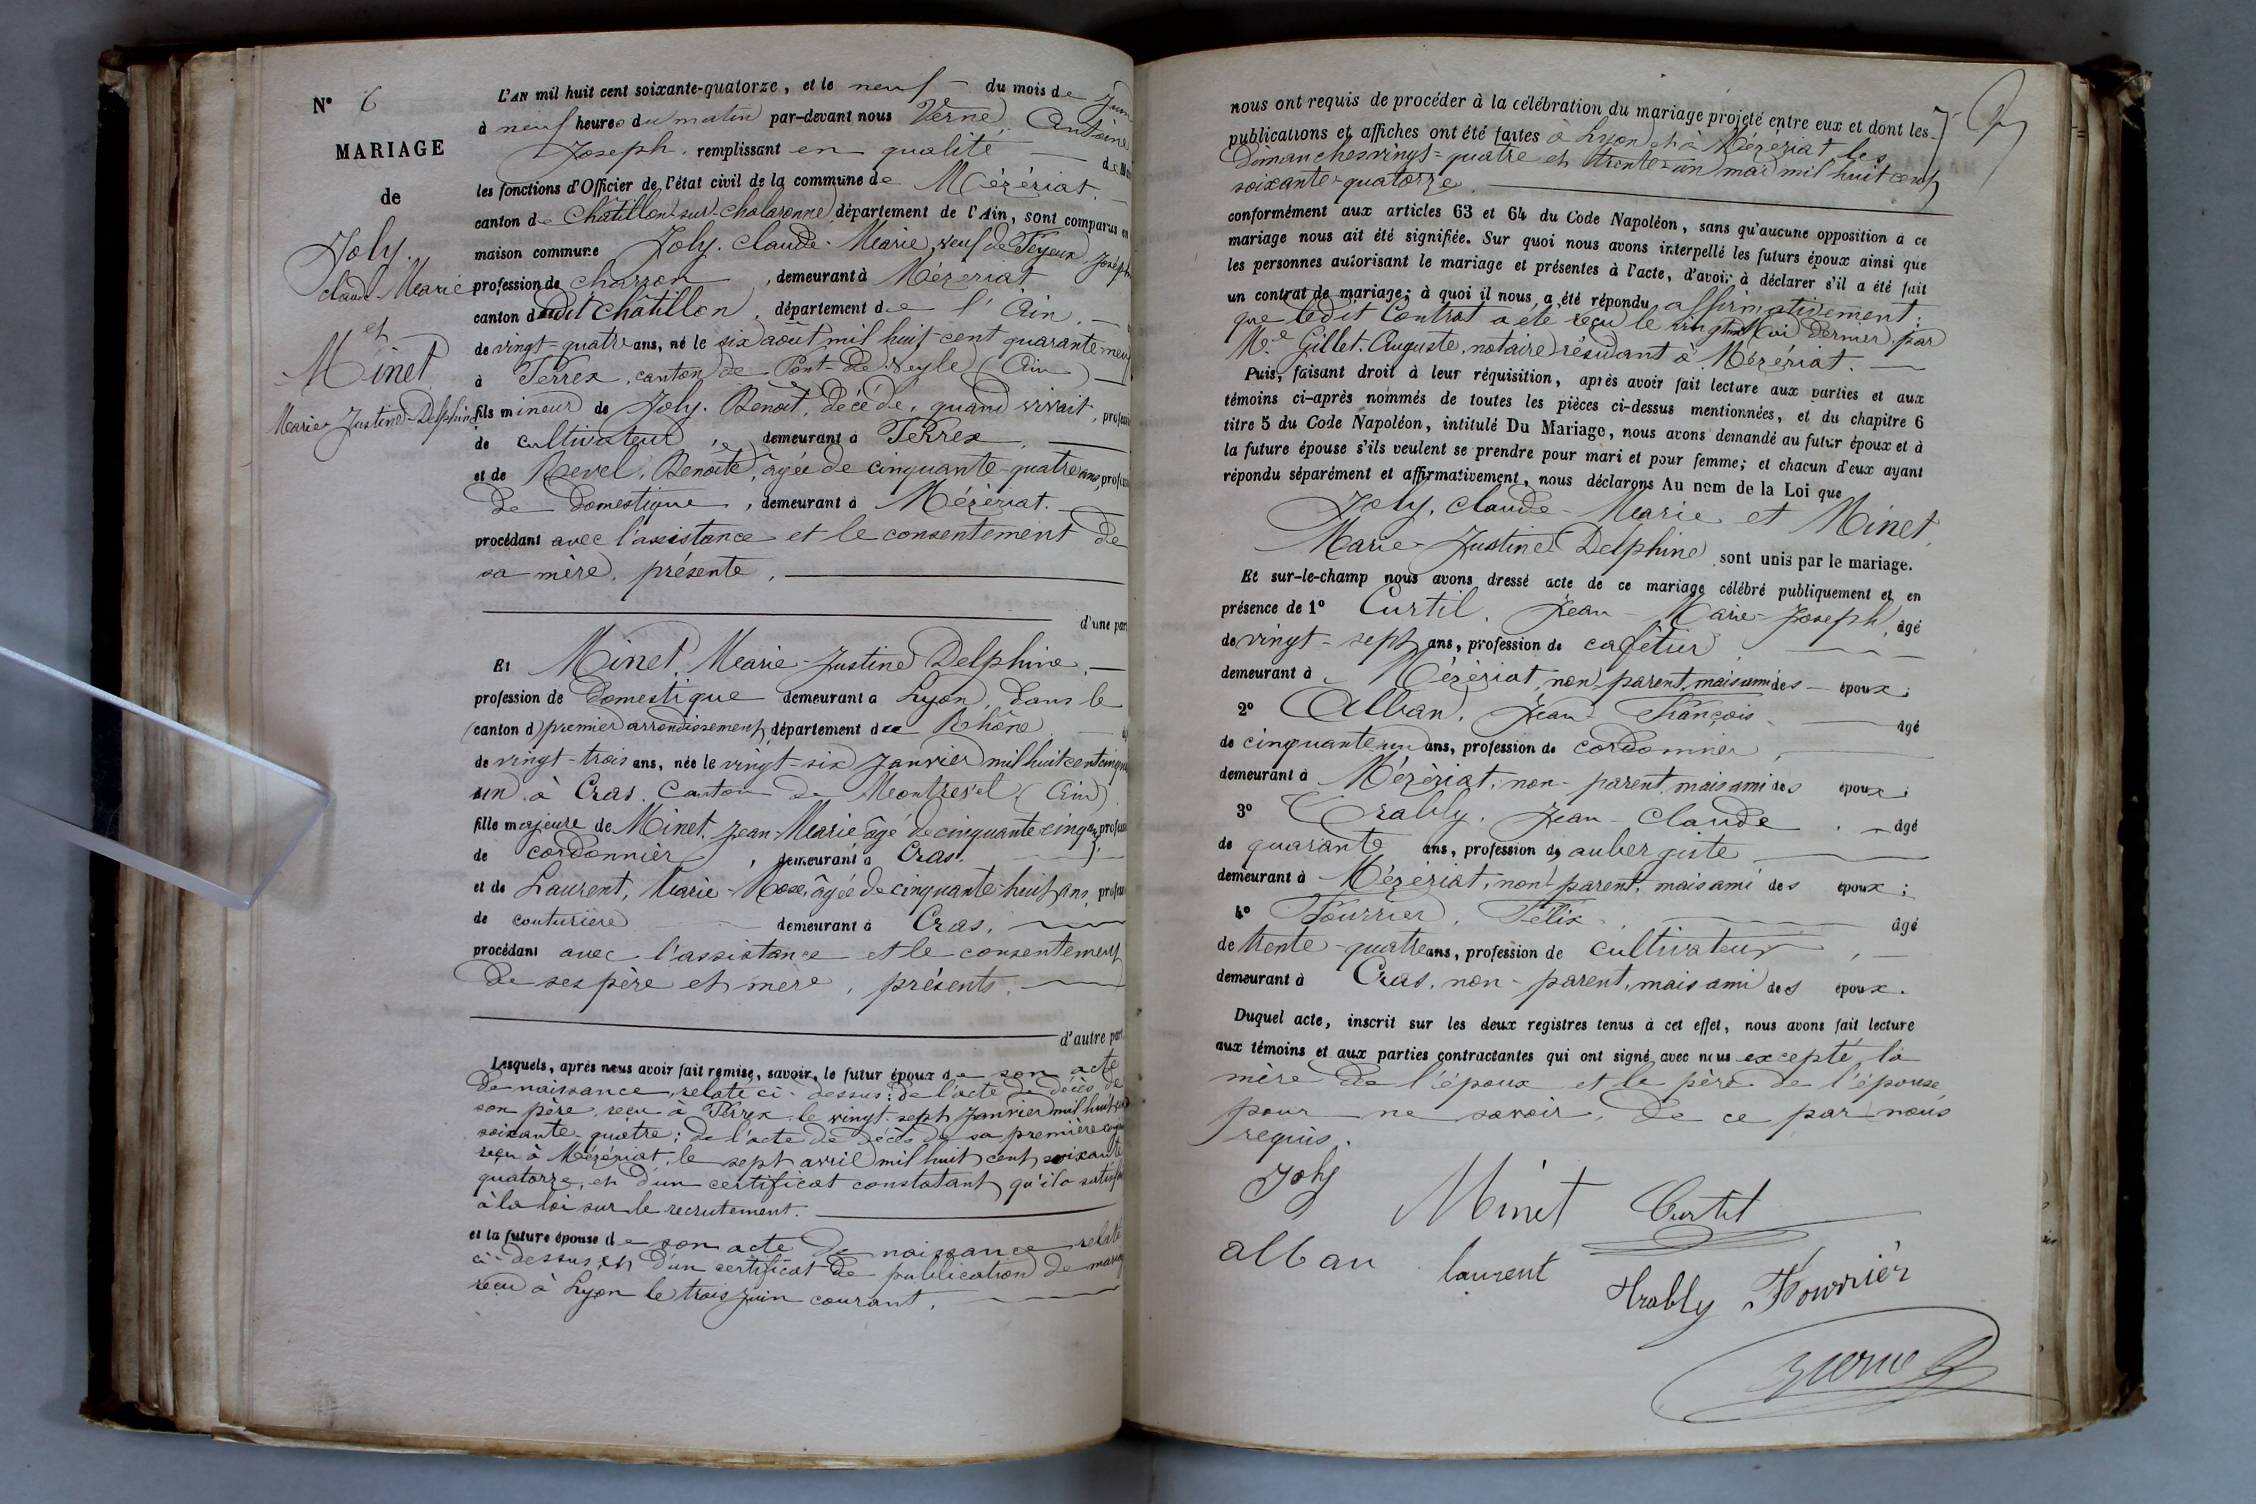 N° 6
MARIAGE
de
Joly.
Claude-Marie
et
Minet
Marie-Justine-Delphine
L'AN mil huit cent soixante-quatorze, et le neuf du mois de Juin
à neuf heures du matin par-devant nous Verne, Antoine
Joseph, remplissant en qualité de
les fonctions d'Officier de l'état civil de la commune de Mézériat.
canton de Châtillon-sur-Chalaronne, département de l'Ain, sont comparus en
maison commune Joly, Claude-Marie, veuf de Joséphine
profession de charron, demeurant à Mézériat
canton dudit Châtillon, département de l'Ain.
de vingt-quatre ans, né le six août mil huit cent quarante-neuf
à Perrex, canton de Pont-de-Veyle (Ain)
fils mineur de Joly, Benoît, décédé, quand vivait,
de cultivateur, demeurant à Perrex,
et de Revel, Benoîte, âgée de cinquante-quatre ans,
de domestique, demeurant à Mézériat.
procédant avec l'assistance et le consentement de
sa mère, présente.
d'une part
Et Minet, Marie-Justine Delphine,
profession de domestique demeurant à Lyon, dans le
(canton d) premier arrondissement, département du Rhône
de vingt-trois ans, née le vingt-six Janvier mil huit cent cinquante
un à Cras, Canton de Montrevel (Ain)
fille majeure de Minet, Jean-Marie âgé de cinquante-cinq
de cordonnier, demeurant à Cras.
et de Laurent, Marie-Rose, âgée de cinquante-huit ans,
de couturière demeurant à Cras.
procédant avec l'assistance et le consentement
de ses père et mère, présents.
d'autre part
Lesquels, après nous avoir fait remise, savoir, le futur époux de son acte
de naissance, relaté ci-dessus; de l'acte de décès de
son père, reçu à Perrex le vingt-sept Janvier mil huit cent
soixante-quatre; de l'acte de décès de sa première
reçu à Mézériat, le sept avril mil huit cent soixante
quatorze, et d'un certificat constatant qu'il a satisfait
à la loi sur le recrutement.
et la future épouse de son acte de naissance relaté
ci-dessus, et d'un certificat de publication de mariage
reçu à Lyon le trois juin courant.
nous ont requis de procéder à la célébration du mariage projeté entre eux et dont les
publications et affiches ont été faites à Lyon et à Mézériat les
dimanches vingt-quatre et trente-un mai mil huit cent
soixante-quatorze
conformément aux articles 63 et 64 du Code Napoléon, sans qu'aucune opposition à ce
mariage nous ait été signifiée. Sur quoi nous avons interpellé les futurs époux ainsi que
les personnes autorisant le mariage et présentes à l'acte, d'avoir à déclarer s'il a été fait
un contrat de mariage; à quoi il nous a été répondu affirmativement;
que ledit Contrat a été reçu le mai dernier, par
Me Gillet, Auguste, notaire résidant à Mézériat.
Puis, faisant droit à leur réquisition, après avoir fait lecture aux parties et aux
témoins ci-après nommés de toutes les pièces ci-dessus mentionnées, et du chapitre 6
titre 5 du Code Napoléon, intitulé Du Mariage, nous avons demandé au futur époux et à
la future épouse s'ils veulent se prendre pour mari et pour femme; et chacun d'eux ayant
répondu séparément et affirmativement, nous déclarons Au nom de la Loi que
Joly, Claude-Marie et Minet,
Marie-Justine Delphine, sont unis par le mariage.
Et sur-le-champ nous avons dressé acte de ce mariage célébré publiquement et en
présence de 1° Curtil, Jean-Marie-Joseph, âgé
de vingt-sept ans, profession de cafetier,
demeurant à Mézériat, non parent, mais ami des époux;
2° Alban, Jean-François âgé
de cinquante-un ans, profession de cordonnier,
demeurant à Mézériat, non-parent, mais ami des époux;
3° Trably, Jean-Claude, âgé
de quarante ans, profession de aubergiste
demeurant à Mézériat, non parent, mais ami des époux;
4° Fourrier, Félix, âgé
de trente-quatre ans, profession de cultivateur,
demeurant à Cras, non-parent, mais ami des époux.
Duquel acte, inscrit sur les deux registres tenus à cet effet, nous avons fait lecture
aux témoins et aux parties contractantes qui ont signé avec nous excepté la
mère de l'époux et le père de l'épouse
pour ne savoir, de ce par nous
requis.
Joly Minet Curtil
alban laurent trably Fourrier
Verne